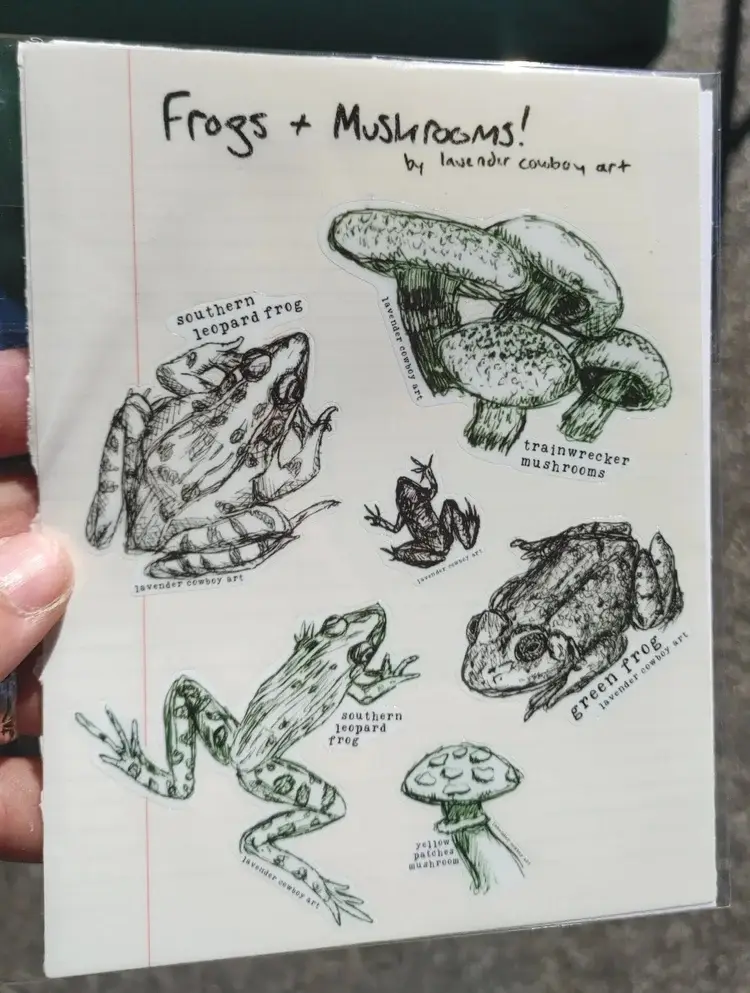 Frogs + Mushrooms!
by lavender cowboy art
southern
leopard frog
lavender cowboy art
lavender cowboy art
trainwrecker
mushrooms
lavender cowboy art
green frog
lavender cowboy art
southern
leopard
frog
lavender cowboy art
yellow
patches
mushroom
lavender cowboy art